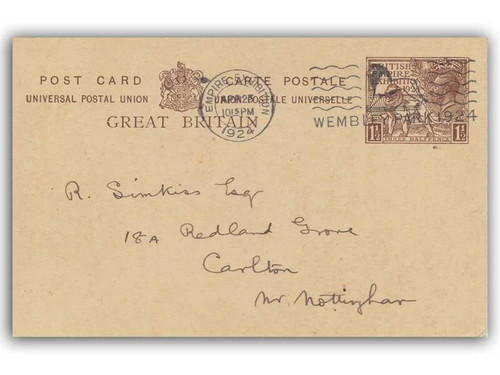 POST CARD CARTE POSTALE
UNIVERSAL POSTAL UNION UNION POSTALE UNIVERSELLE
GREAT BRITAIN
EMPIRE EXHIBITION
APR 23
1015PM
1924
WEMBLEY PARK 1924
BRITISH
EMPIRE
EXHIBITION
1924
1½ 1½
THREE HALFPENCE
R. Simkiss Esq
18A Redland Grove
Carlton
Nr. Nottingham